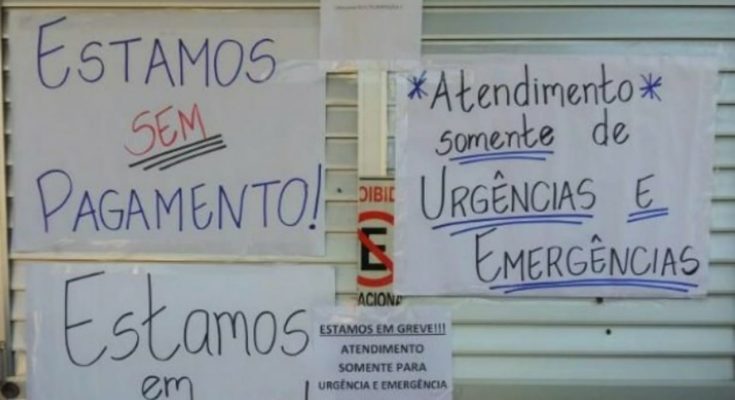 ESTAMOS
SEM
PAGAMENTO!
*Atendimento*
somente de
URGÊNCIAS E
EMERGÊNCIAS
OIBID
E
ACIONA
Estamos
em
ESTAMOS EM GREVE!!!
ATENDIMENTO
SOMENTE PARA
URGÊNCIA E EMERGÊNCIA